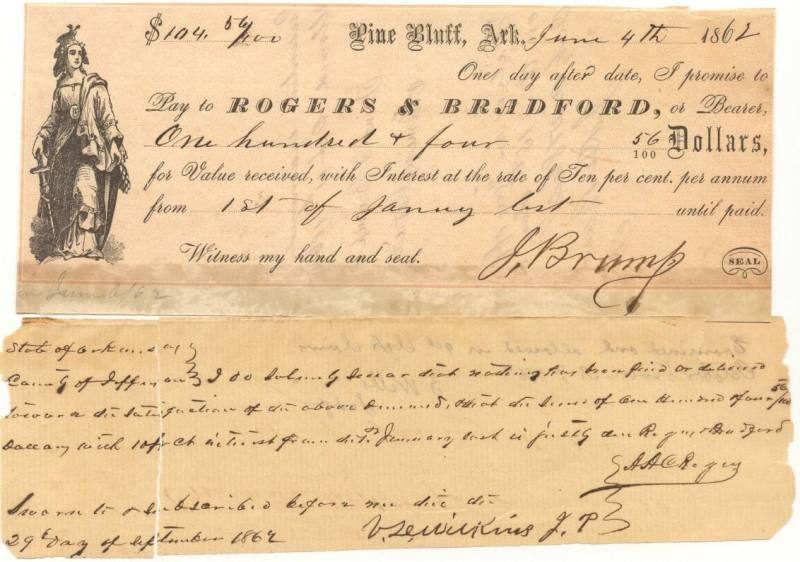 $104. 56/100 Pine Bluff, Ark. June 4th 1862
One day after date, I promise to
Pay to ROGERS & BRADFORD, or Bearer,
One hundred & four 56/100 Dollars,
for Value received, with Interest at the rate of Ten per cent. per annum
from 1st of Janury last until paid.
Witness my hand and seal. J. Brump SEAL
June 6/62
State of Arkansas
County of Jefferson I do solemnly swear that nothing has been paid or delivered
toward the satisfaction of the above Demand, & that the sum of One Hundred & four 56/100
Dollars with 10 pr ct interest from the 1st January last is justly due Rogers & Bradford
A A C Rogers
Sworn to & subscribed before me this the
29th Day of September 1862 Wilkins J. P.